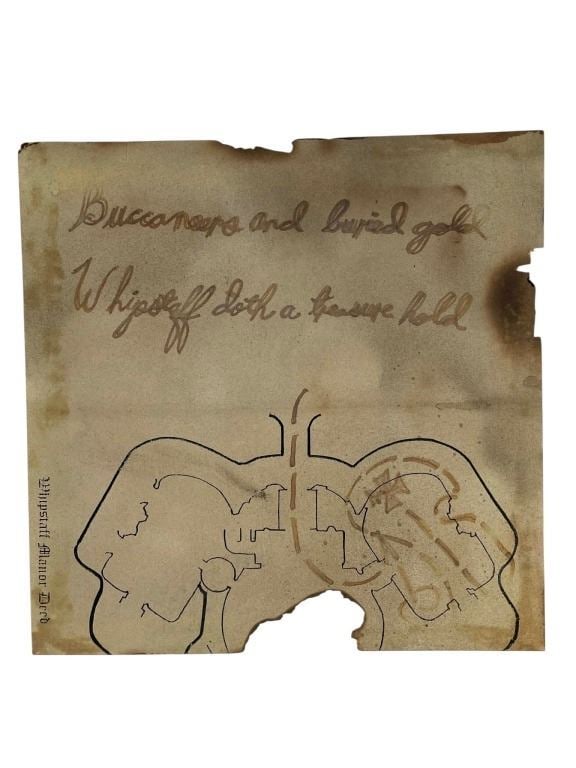 Buccaneers and buried gold
Whipstaff doth a treasure hold
Whipstaff Manor Deed